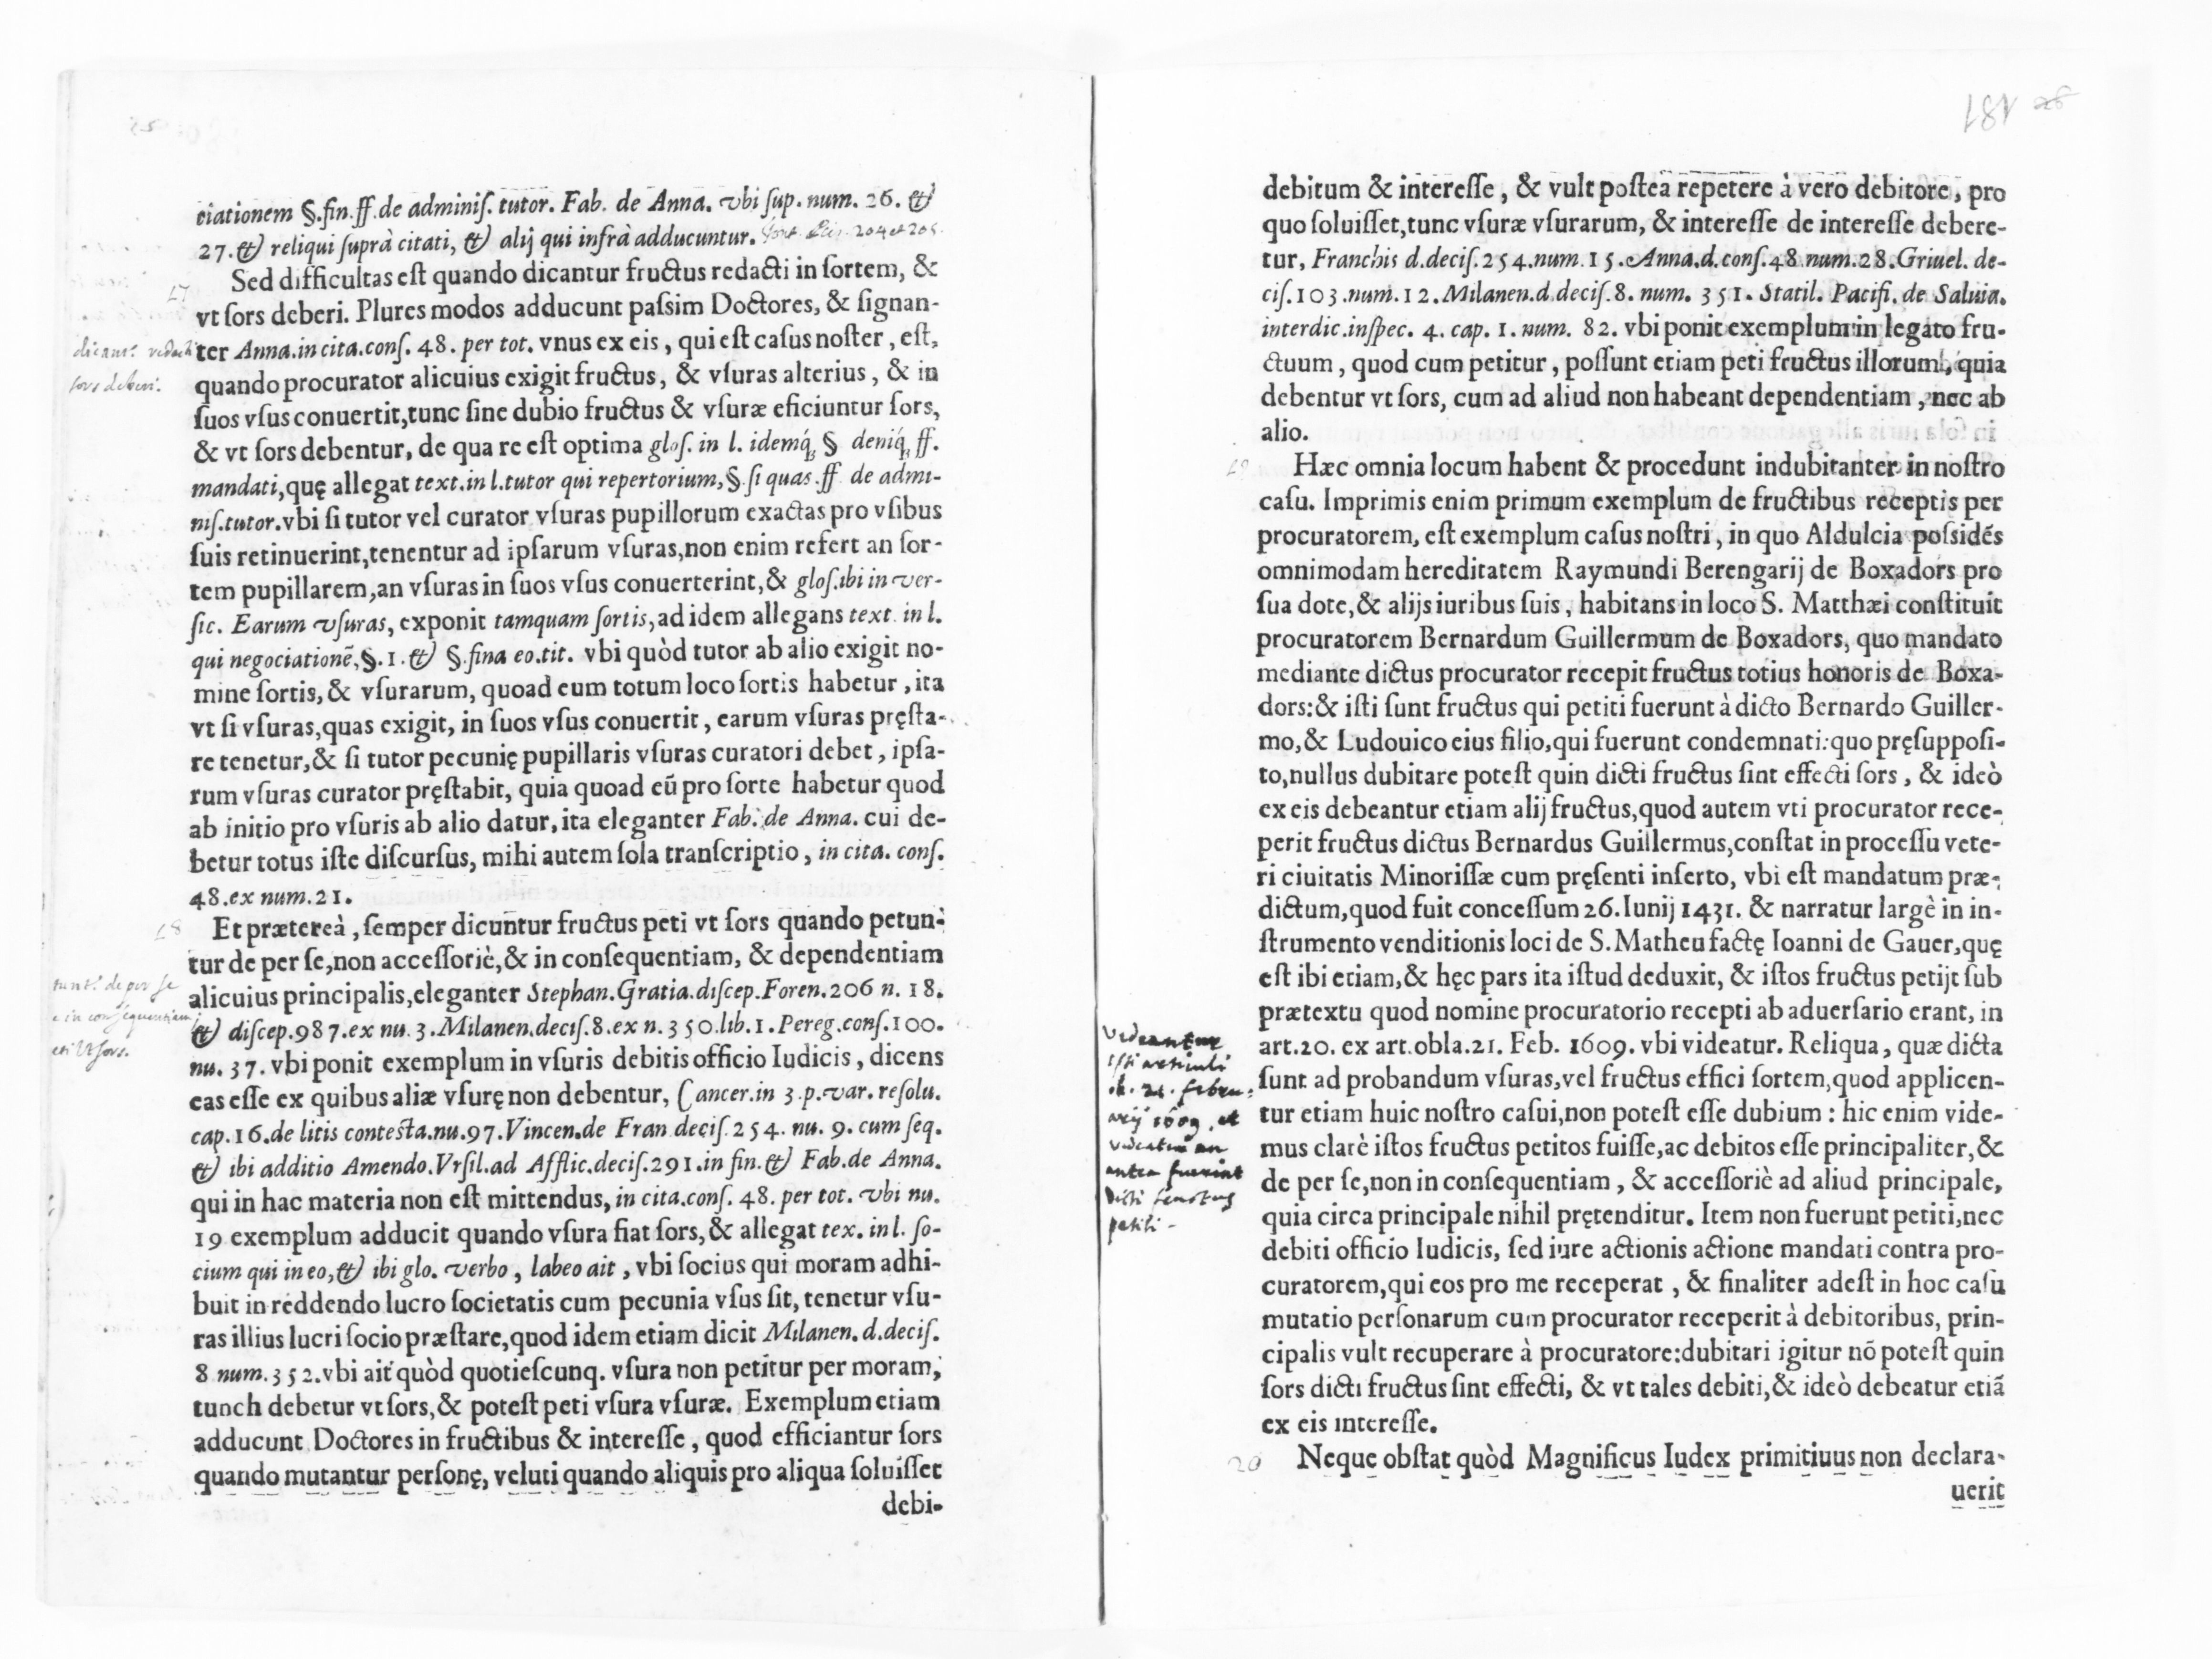 ciationem §.fin.ff.de adminiſ. tutor. Fab. de Anna. vbi ſup. num. 26. &
27. & reliqui ſuprà citati, & alij qui infrà adducuntur. 204 et 205
Sed difficultas eſt quando dicantur fructus redacti in ſortem, &
vt ſors deberi. Plures modos adducunt paſsim Doctores, & ſignan-
ter Anna.in cita.conſ. 48. per tot. vnus ex eis, qui eſt caſus noſter, eſt,
quando procurator alicuius exigit fructus, & vſuras alterius, & in
ſuos vſus conuertit,tunc ſine dubio fructus & vſuræ eficiuntur ſors,
& vt ſors debentur, de qua re eſt optima gloſ. in l. idemq́; § deniq́; ff.
mandati,quę allegat text.in l.tutor qui repertorium,§.ſi quas.ff. de admi-
niſ.tutor.vbi ſi tutor vel curator vſuras pupillorum exactas pro vſibus
ſuis retinuerint,tenentur ad ipſarum vſuras,non enim refert an ſor-
tem pupillarem,an vſuras in ſuos vſus conuerterint,& gloſ.ibi in ver-
ſic. Earum vſuras, exponit tamquam ſortis,ad idem allegans text. in l.
qui negociationẽ,§.1.& §.fina eo.tit. vbi quòd tutor ab alio exigit no-
mine ſortis,& vſurarum, quoad eum totum loco ſortis habetur, ita
vt ſi vſuras,quas exigit, in ſuos vſus conuertit, earum vſuras pręſta-
re tenetur,& ſi tutor pecunię pupillaris vſuras curatori debet, ipſa-
rum vſuras curator pręſtabit, quia quoad eũ pro ſorte habetur quod
ab initio pro vſuris ab alio datur,ita eleganter Fab. de Anna. cui de-
betur totus iſte diſcurſus, mihi autem ſola tranſcriptio, in cita. conſ.
48.ex num.21.
18 Et prætereà, ſemper dicuntur fructus peti vt ſors quando petun-
tur de per ſe,non acceſſoriè,& in conſequentiam, & dependentiam
alicuius principalis,eleganter Stephan.Gratia.diſcep.Foren.206 n. 18.
& diſcep.987.ex nu. 3.Milanen.deciſ.8.ex n. 350.lib.1.Pereg.conſ.100.
nu. 37. vbi ponit exemplum in vſuris debitis officio Iudicis, dicens
eas eſſe ex quibus aliæ vſurę non debentur, Cancer.in 3.p.var. reſolu.
cap.16.de litis conteſta.nu.97.Vincen.de Fran deciſ.254. nu. 9. cum ſeq.
& ibi additio Amendo.Vrſil.ad Afflic.deciſ.291.in fin.& Fab.de Anna.
qui in hac materia non eſt mittendus, in cita.conſ. 48. per tot. vbi nu.
19 exemplum adducit quando vſura fiat ſors,& allegat tex. in l. ſo-
cium qui in eo,& ibi glo. verbo, labeo ait, vbi ſocius qui moram adhi-
buit in reddendo lucro ſocietatis cum pecunia vſus ſit, tenetur vſu-
ras illius lucri ſocio præſtare,quod idem etiam dicit Milanen. d.deciſ.
8 num.352.vbi ait quòd quotieſcunq. vſura non petitur per moram,
tunch debetur vt ſors,& poteſt peti vſura vſuræ. Exemplum etiam
adducunt Doctores in fructibus & intereſſe, quod efficiantur ſors
quando mutantur perſonę, veluti quando aliquis pro aliqua ſoluiſſet
debi-
sors deberi.
de per se
in consequentiam
181 28
debitum & intereſſe, & vult poſteà repetere à vero debitore, pro
quo ſoluiſſet,tunc vſuræ vſurarum, & intereſſe de intereſſe debere-
tur, Franchis d.deciſ.254.num.15.Anna.d.conſ.48.num.28.Griuel. de-
ciſ.103.num.12.Milanen.d.deciſ.8. num. 351. Statil. Pacifi. de Saluia.
interdic.inſpec. 4. cap. 1. num. 82. vbi ponit exemplum in legato fru-
ctuum, quod cum petitur, poſſunt etiam peti fructus illorum, quia
debentur vt ſors, cum ad aliud non habeant dependentiam, nec ab
alio.
Hæc omnia locum habent & procedunt indubitanter in noſtro
caſu. Imprimis enim primum exemplum de fructibus receptis per
procuratorem, eſt exemplum caſus noſtri, in quo Aldulcia poſsidẽs
omnimodam hereditatem Raymundi Berengarij de Boxadors pro
ſua dote,& alijs iuribus ſuis, habitans in loco S. Matthæi conſtituit
procuratorem Bernardum Guillermum de Boxadors, quo mandato
mediante dictus procurator recepit fructus totius honoris de Boxa-
dors:& iſti ſunt fructus qui petiti fuerunt à dicto Bernardo Guiller-
mo,& Ludouico eius filio,qui fuerunt condemnati:quo pręſuppoſi-
to,nullus dubitare poteſt quin dicti fructus ſint effecti ſors, & ideò
ex eis debeantur etiam alij fructus,quod autem vti procurator rece-
perit fructus dictus Bernardus Guillermus,conſtat in proceſſu vete-
ri ciuitatis Minoriſſæ cum pręſenti inſerto, vbi eſt mandatum præ-
dictum,quod fuit conceſſum 26.Iunij 1431. & narratur largè in in-
ſtrumento venditionis loci de S.Matheu factę Ioanni de Gauer,quę
eſt ibi etiam,& hęc pars ita iſtud deduxit, & iſtos fructus petijt ſub
prætextu quod nomine procuratorio recepti ab aduerſario erant, in
art.20. ex art.obla.21. Feb. 1609. vbi videatur. Reliqua, quæ dicta
ſunt ad probandum vſuras,vel fructus effici ſortem,quod applicen-
tur etiam huic noſtro caſui,non poteſt eſſe dubium: hic enim vide-
mus clarè iſtos fructus petitos fuiſſe,ac debitos eſſe principaliter,&
de per ſe,non in conſequentiam, & acceſſoriè ad aliud principale,
quia circa principale nihil prętenditur. Item non fuerunt petiti,nec
debiti officio Iudicis, ſed iure actionis actione mandati contra pro-
curatorem,qui eos pro me receperat, & finaliter adeſt in hoc caſu
mutatio perſonarum cum procurator receperit à debitoribus, prin-
cipalis vult recuperare à procuratore:dubitari igitur nõ poteſt quin
ſors dicti fructus ſint effecti, & vt tales debiti,& ideò debeatur etiã
ex eis intereſſe.
20 Neque obſtat quòd Magnificus Iudex primitiuus non declara-
uerit
Videantur
isti articuli
ob. 21. febru-
arij 1609. et
videatur an
antea fuerint
dicti fructus
petiti -